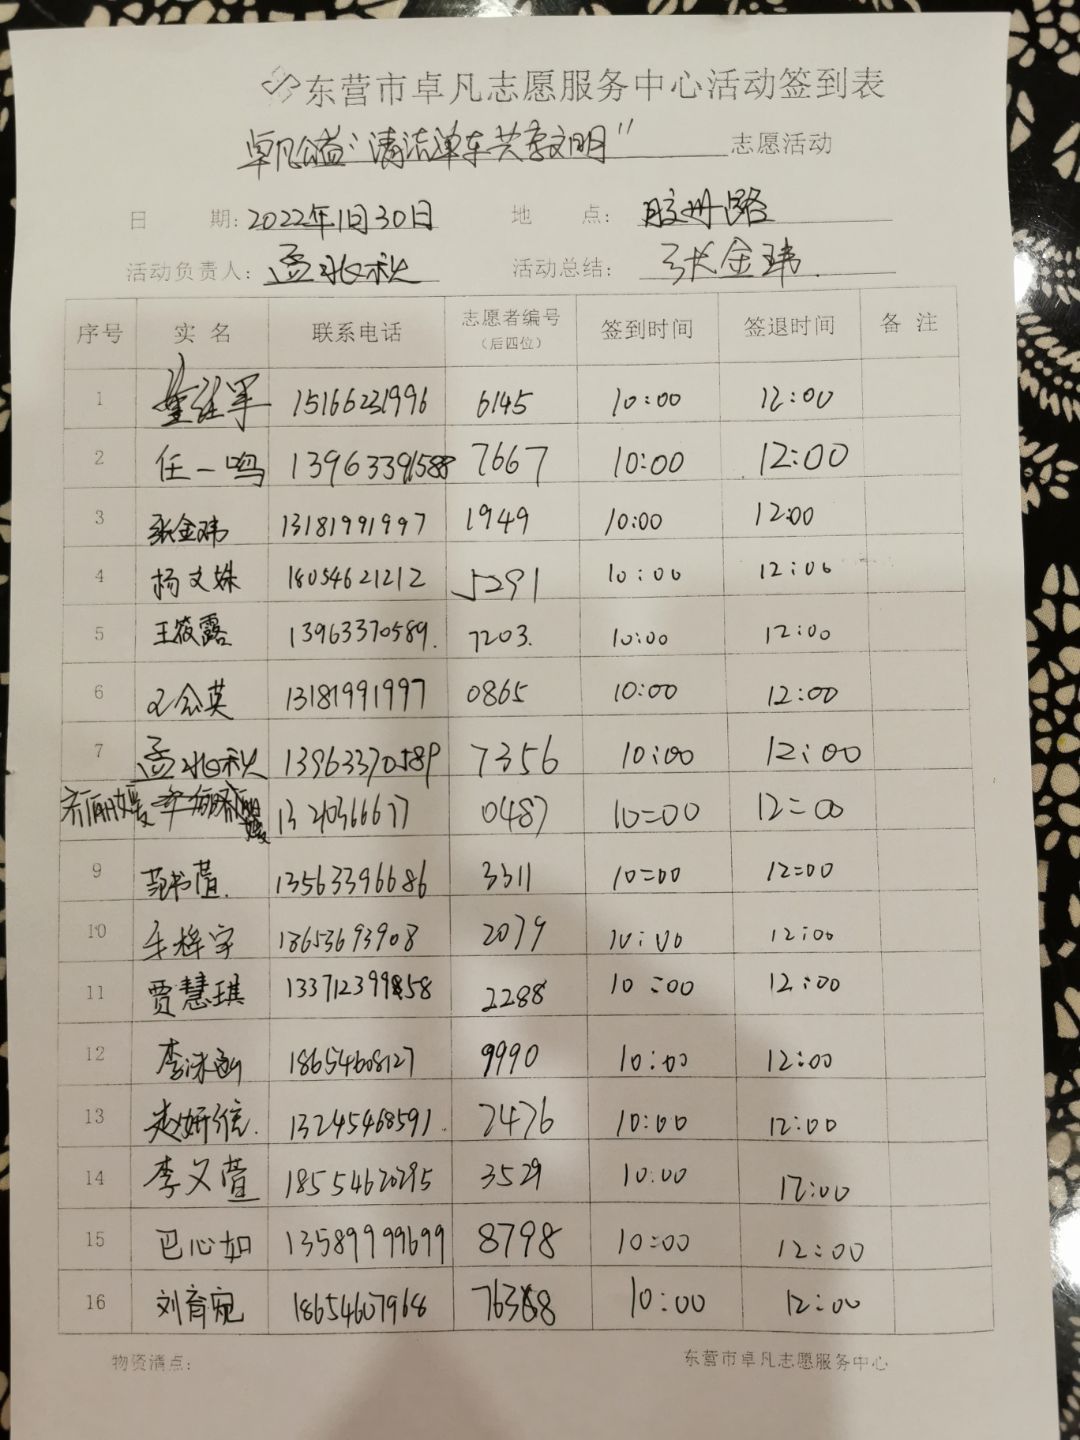 东营市卓凡志愿服务中心活动签到表
卓凡公益“清洁单车共享文明” 志愿活动
日 期: 2022年1月30日 地 点: 胶州路
活动负责人: 孟兆秋 活动总结: 张金玮
序号 实 名 联系电话 志愿者编号 (后四位) 签到时间 签退时间 备 注
1 董继军 15166231996 6145 10:00 12:00
2 任一鸣 13963391588 7667 10:00 12:00
3 张金玮 13181991997 1949 10:00 12:00
4 杨文姝 18054621212 5291 10:00 12:00
5 王筱露 13963370589. 7203. 10:00 12:00
6 13181991997 0865 10:00 12:00
7 孟兆秋 13963370589 7356 10:00 12:00
0487 10=00 12=00
9 范书萱. 13563396686 3311 10=00 12=00
10 18653693908 2079 10:00 12:00
11 贾慧琪 2288 10:00 12:00
12 李沐 18654608127 9990 10:00 12:00
13 赵妍 13245468591. 7476 10:00 12:00
14 李又萱 18554620295 3529 10:00 12:00
15 巴心如 13589999699 8798 10=00 12:00
16 刘育宛 18654607968 10:00 12:00
物资清点: 东营市卓凡志愿服务中心